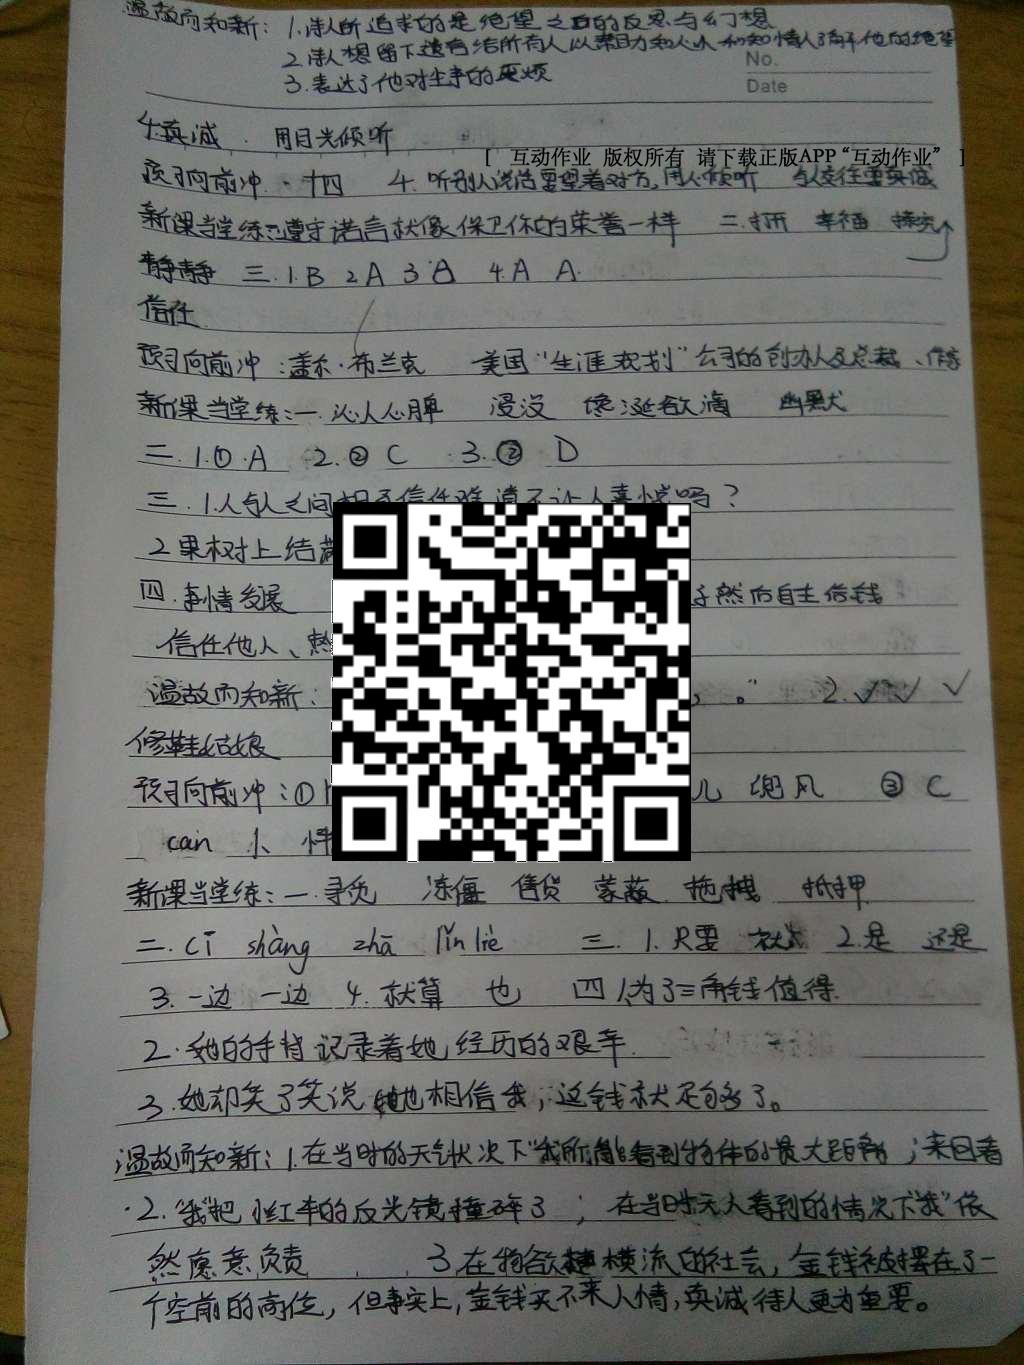 温故而知新：1.诗人所追求的是绝望之后的反思与幻想
2.诗人想留下遗言给所有人以帮助 和知情人了解他的绝望
3.表达了他对生事的厌烦
No.
Date
4.真诚 用目光倾听
[ 互动作业 版权所有 请下载正版APP“互动作业” ]
预习向前冲 · 十四 4.听别人说话要望着对方,用心倾听 与人交往要真诚
新课当堂练:遵守诺言就像保卫你的荣誉一样 二.打开 幸福 探究
静静 三.1.B 2A 3A 4.A A.
信任
预习向前冲:盖尔·布兰克 美国“生涯规划”公司的创办人及总裁、作家
新课当堂练:一.沁人心脾 浸没 馋涎欲滴 幽默
二.1.① A 2.② C 3.② D
三.1.人与人之间相互信任难道不让人喜悦吗？
2果树上结满
四.事情发展 然而自主信钱
信任他人、
温故而知新: 。” 2.✓✓ ✓
修鞋姑娘
预习向前冲:① 儿 兜风 ③ C
can 小 忄
新课当堂练:一.寻觅 冻僵 售货 蒙蔽 拖拽 抵押
二.cī shàng zhā lǐn liè 三.1.只要 就 2.是 还是
3.一边 一边 4.就算 也 四 1.为了三角钱值得.
2.她的手背记录着她经历的艰辛.
3.她却笑了笑说 她相信我,这钱就足够了。
温故而知新:1.在当时的天气状况下“我所能看到物体的最大距离 ；来回看
2.“我”把小红车的反光镜撞碎了 ；在当时无人看到的情况下“我”依
然愿意负责 3.在物欲横流的社会，金钱被摆在了一
个空前的高位，但事实上,金钱买不来人情,真诚待人更为重要。